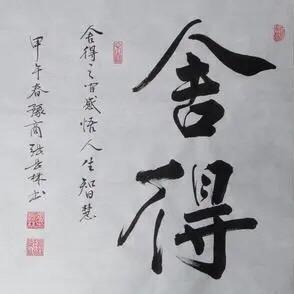 舍得
舍得之间感悟人生智慧
甲午春豫商张长林书